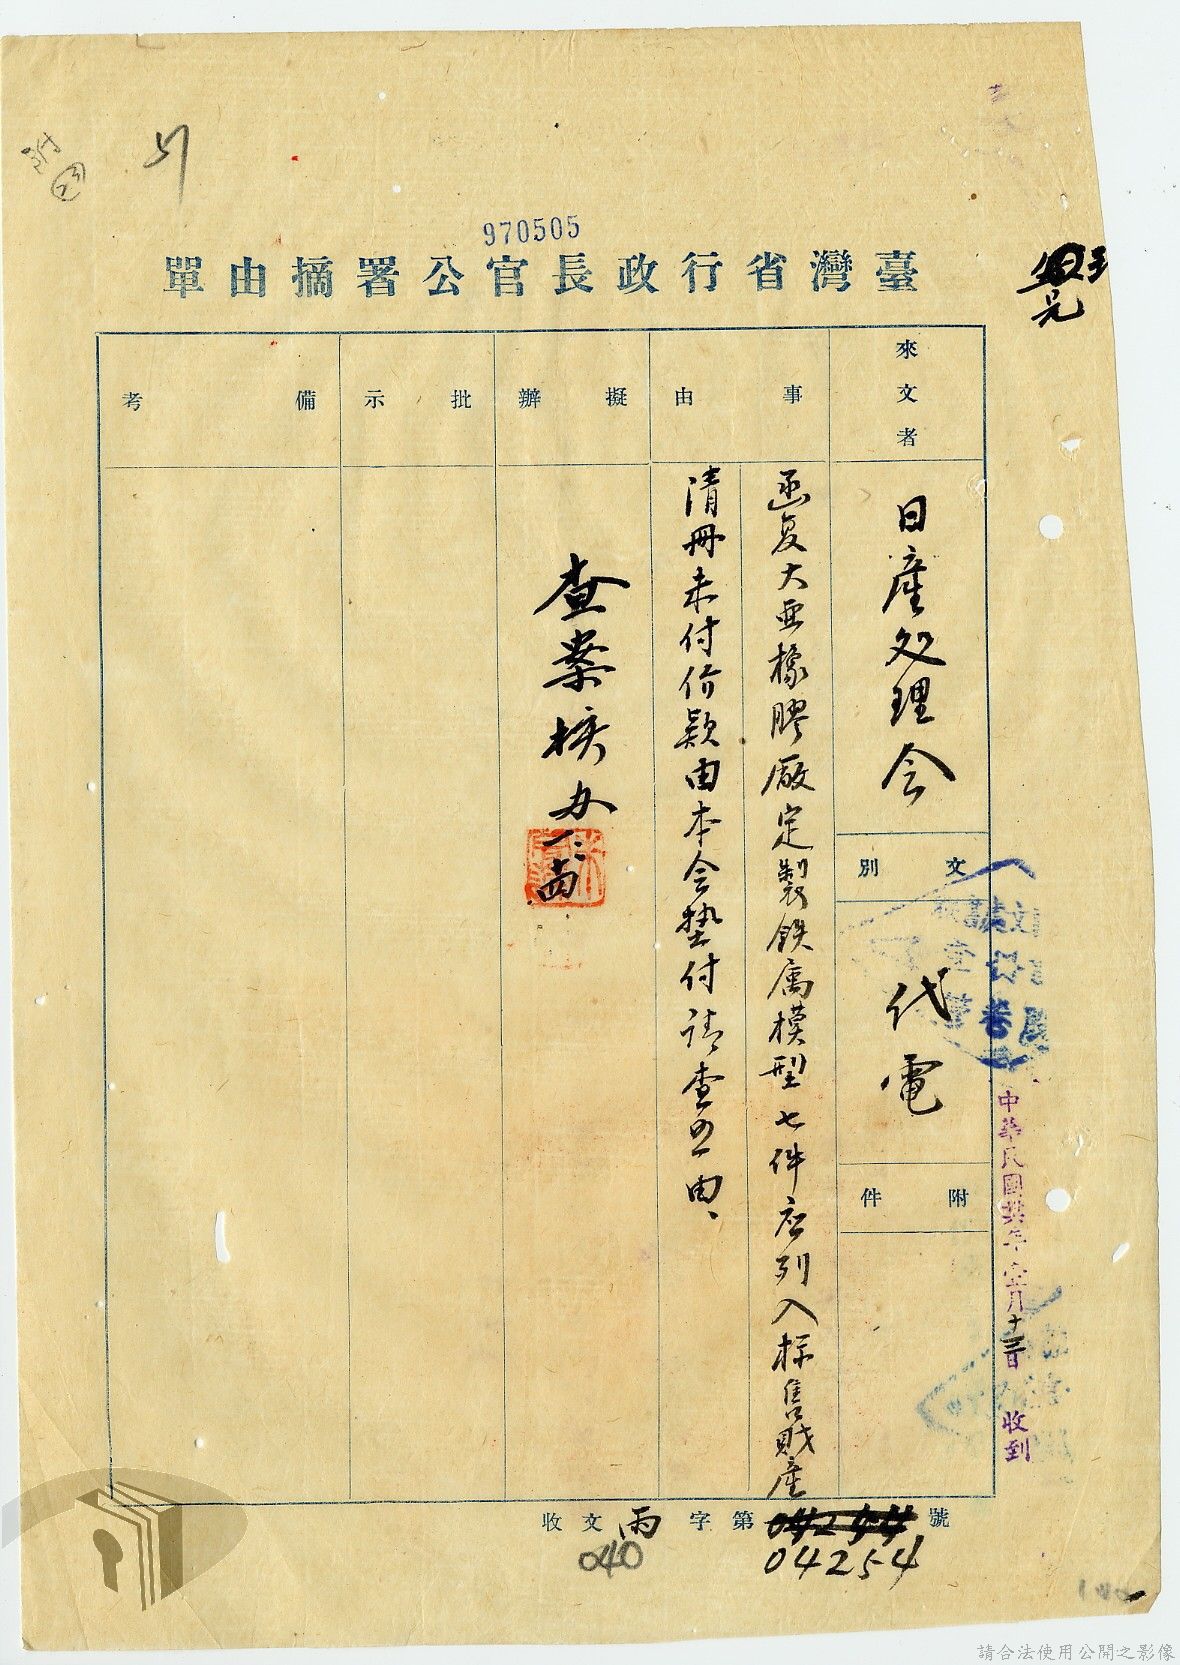 970505
臺灣省行政長官公署摘由單
來文者
日產処理会
文別
代電
附件
事由
函复大亜橡膠廠定製鉄属模型七件应列入标售財產
清冊未付价款由本会墊付请查照由、
擬辦
查案核办
批示
備考
中華民國卅六年壹月十三日
收到
收文雨字第號
04254
040
請合法使用公開之影像